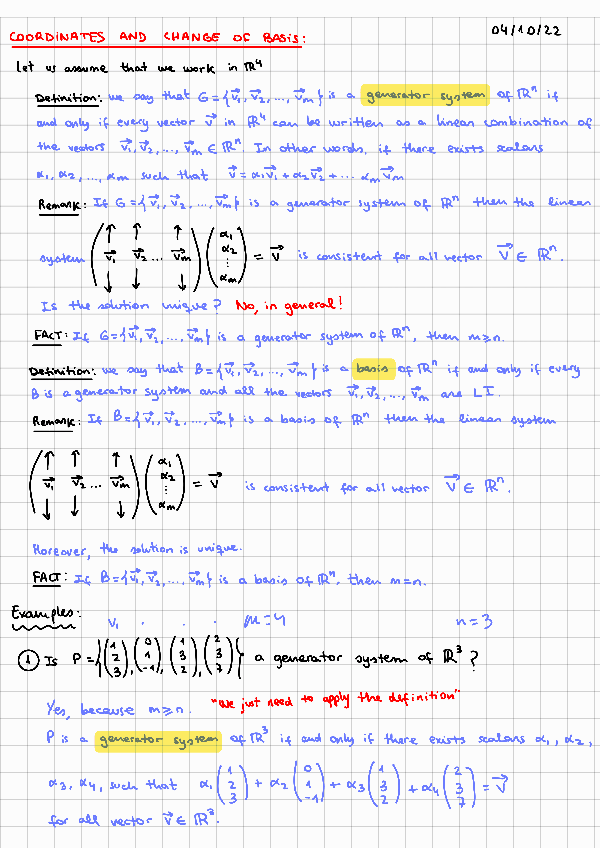 04/10/22
COORDINATES AND CHANGE OF BASIS:
Let us assume that we work in ℝ⁴
Definition: we say that G={v⃗₁, v⃗₂, ..., v⃗ₘ} is a generator system of ℝⁿ if
and only if every vector v⃗ in ℝ⁴ can be written as a linear combination of
the vectors v⃗₁, v⃗₂, ..., v⃗ₘ ∈ ℝⁿ. In other words, if there exists scalars
α₁, α₂, ..., αₘ such that v⃗ = α₁v⃗₁ + α₂v⃗₂ + ... αₘv⃗ₘ
Remark: If G={v⃗₁, v⃗₂, ..., v⃗ₘ} is a generator system of ℝⁿ then the linear
system (↑ ↑ ↑ v⃗₁ v⃗₂ ... v⃗ₘ ↓ ↓ ↓) (α₁ α₂ ⋮ αₘ) = v⃗ is consistent for all vector v⃗ ∈ ℝⁿ.
Is the solution unique? No, in general!
FACT: If G={v⃗₁, v⃗₂, ..., v⃗ₘ} is a generator system of ℝⁿ, then m≥n.
Definition: we say that B={v⃗₁, v⃗₂, ..., v⃗ₘ} is a basis of ℝⁿ if and only if every
B is a generator system and all the vectors v⃗₁, v⃗₂, ..., v⃗ₘ are LI.
Remark: If B={v⃗₁, v⃗₂, ..., v⃗ₘ} is a basis of ℝⁿ then the linear system
(↑ ↑ ↑ v⃗₁ v⃗₂ ... v⃗ₘ ↓ ↓ ↓) (α₁ α₂ ⋮ αₘ) = v⃗ is consistent for all vector v⃗ ∈ ℝⁿ.
Moreover, the solution is unique.
FACT: If B={v⃗₁, v⃗₂, ..., v⃗ₘ} is a basis of ℝⁿ, then m=n.
Examples: v₁ . . . m=4 n=3
① Is P={(1 2 3), (0 1 -1), (1 3 2), (2 3 7)} a generator system of ℝ³?
Yes, because m≥n. "We just need to apply the definition"
P is a generator system of ℝ³ if and only if there exists scalars α₁, α₂,
α₃, α₄, such that α₁(1 2 3) + α₂(0 1 -1) + α₃(1 3 2) + α₄(2 3 7) = v⃗
for all vector v⃗ ∈ ℝ³.